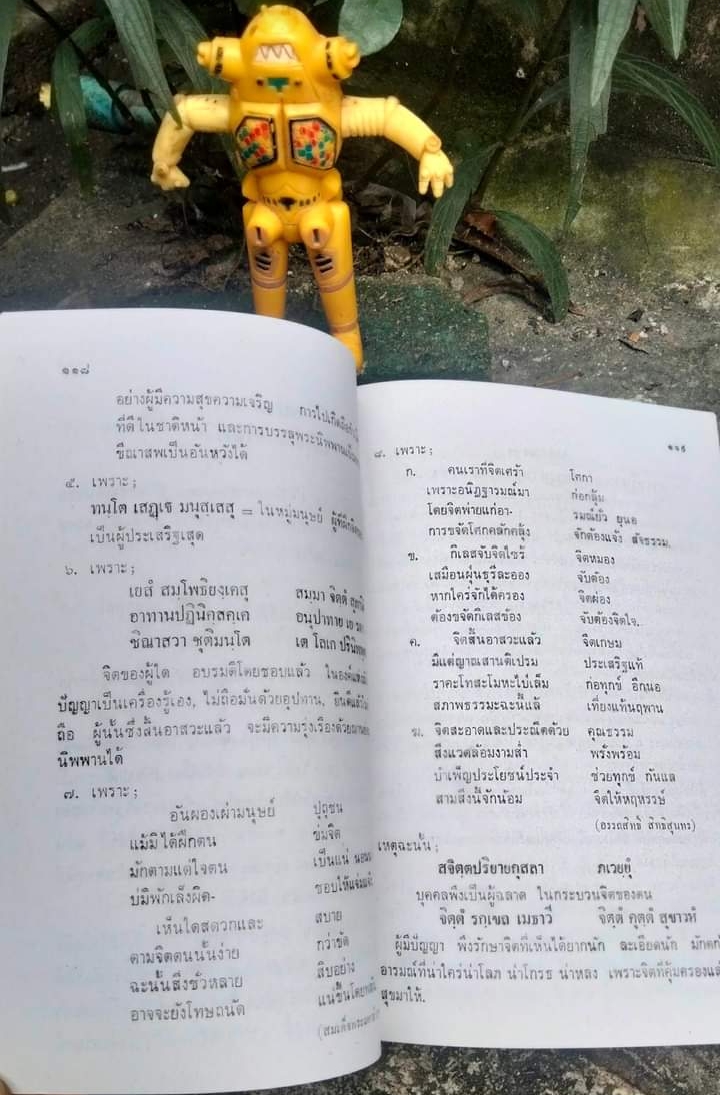 ๑๑๘
อย่างผู้มีความสุขความเจริญ การไปเกิด
ที่ดีในชาติหน้า และการบรรลุพระนิพพาน
ขีณาสพเป็นอันหวังได้
๕. เพราะ ;
ทนฺโต เสฏฺโฐ มนุสฺเสสุ = ในหมู่มนุษย์ ผู้ที่ฝึก
เป็นผู้ประเสริฐสุด
๖. เพราะ ;
เยสํ สมฺโพธิยงฺเคสุ สมฺมา จิตฺตํ
อาทานปฏินิคฺสคฺเค อนุปาทาย เย
ชิณาสวา ชุติมนฺโต เต โลเก
จิตของผู้ใด อบรมดีโดยชอบแล้ว ในองค์
ปัญญาเป็นเครื่องรู้เอง, ไม่ถือมั่นด้วยอุปทาน, ยินดีแล้ว
ถือ ผู้นั้นซึ่งสิ้นอาสวะแล้ว จะมีความรุ่งเรืองด้วย
นิพพานได้
๗. เพราะ ;
อันผองเผ่ามนุษย์ ปุถุชน
แม้มิได้ฝึกตน ข่มจิต
มักตามแต่ใจตน เป็นแน่
บ่มิพักเล็งผิด- ชอบให้
เห็นใดสดวกและ สบาย
ตามจิตตนนั้นง่าย กว่าขัด
ฉะนั้นสิ่งชั่วหลาย สิบอย่าง
อาจจะยังโทษถนัด แน่ขึ้นโดย
๘. เพราะ ;
ก. คนเราที่จิตเศร้า โศกา
เพราะอนิฏฐารมณ์มา ก่อกลุ้ม
โดยจิตพ่ายแก่อา- รมณ์ยั่ว ยุนอ
การขจัดโศกคลักคลุ้ง จักต้องแจ้ง สัจธรรม.
ข. กิเลสจับจิตไซร้ จิตหมอง
เสมือนฝุ่นธุรีละออง จับต้อง
หากใคร่จักใต้ครอง จิตผ่อง
ต้องขจัดกิเลสข้อง จับต้องจิตใจ.
ค. จิตสิ้นอาสวะแล้ว จิตเกษม
มีแต่ญาณสานติเปรม ประเสริฐแท้
ราคะโทสะโมหะไป่เล็ม ก่อทุกข์ อีกนอ
สภาพธรรมะฉะนี้แล้ เที่ยงแท้นฤพาน
ฆ. จิตสะอาดและประณีตด้วย คุณธรรม
สิ่งแวดล้อมงามล้ำ พรั่งพร้อม
บำเพ็ญประโยชน์ประจำ ช่วยทุกข์ กันแล
สามสิ่งนี้จักน้อม จิตให้หฤหรรษ์
(อรรถสิทธิ์ สิทธิสุนทร)
เหตุฉะนั้น ;
สจิตฺตปริยายกุสลา ภเวยฺยุํ
บุคคลพึงเป็นผู้ฉลาด ในกระบวนจิตของตน
จิตฺตํ รกฺเขถ เมธาวี จิตฺตํ คุตฺตํ สุขาวหํ
ผู้มีปัญญา พึงรักษาจิตที่เห็นได้ยากนัก ละเอียดนัก มักตก
อารมณ์ที่น่าใคร่น่าโลภ น่าโกรธ น่าหลง เพราะจิตที่คุ้มครองแล้
สุขมาให้.